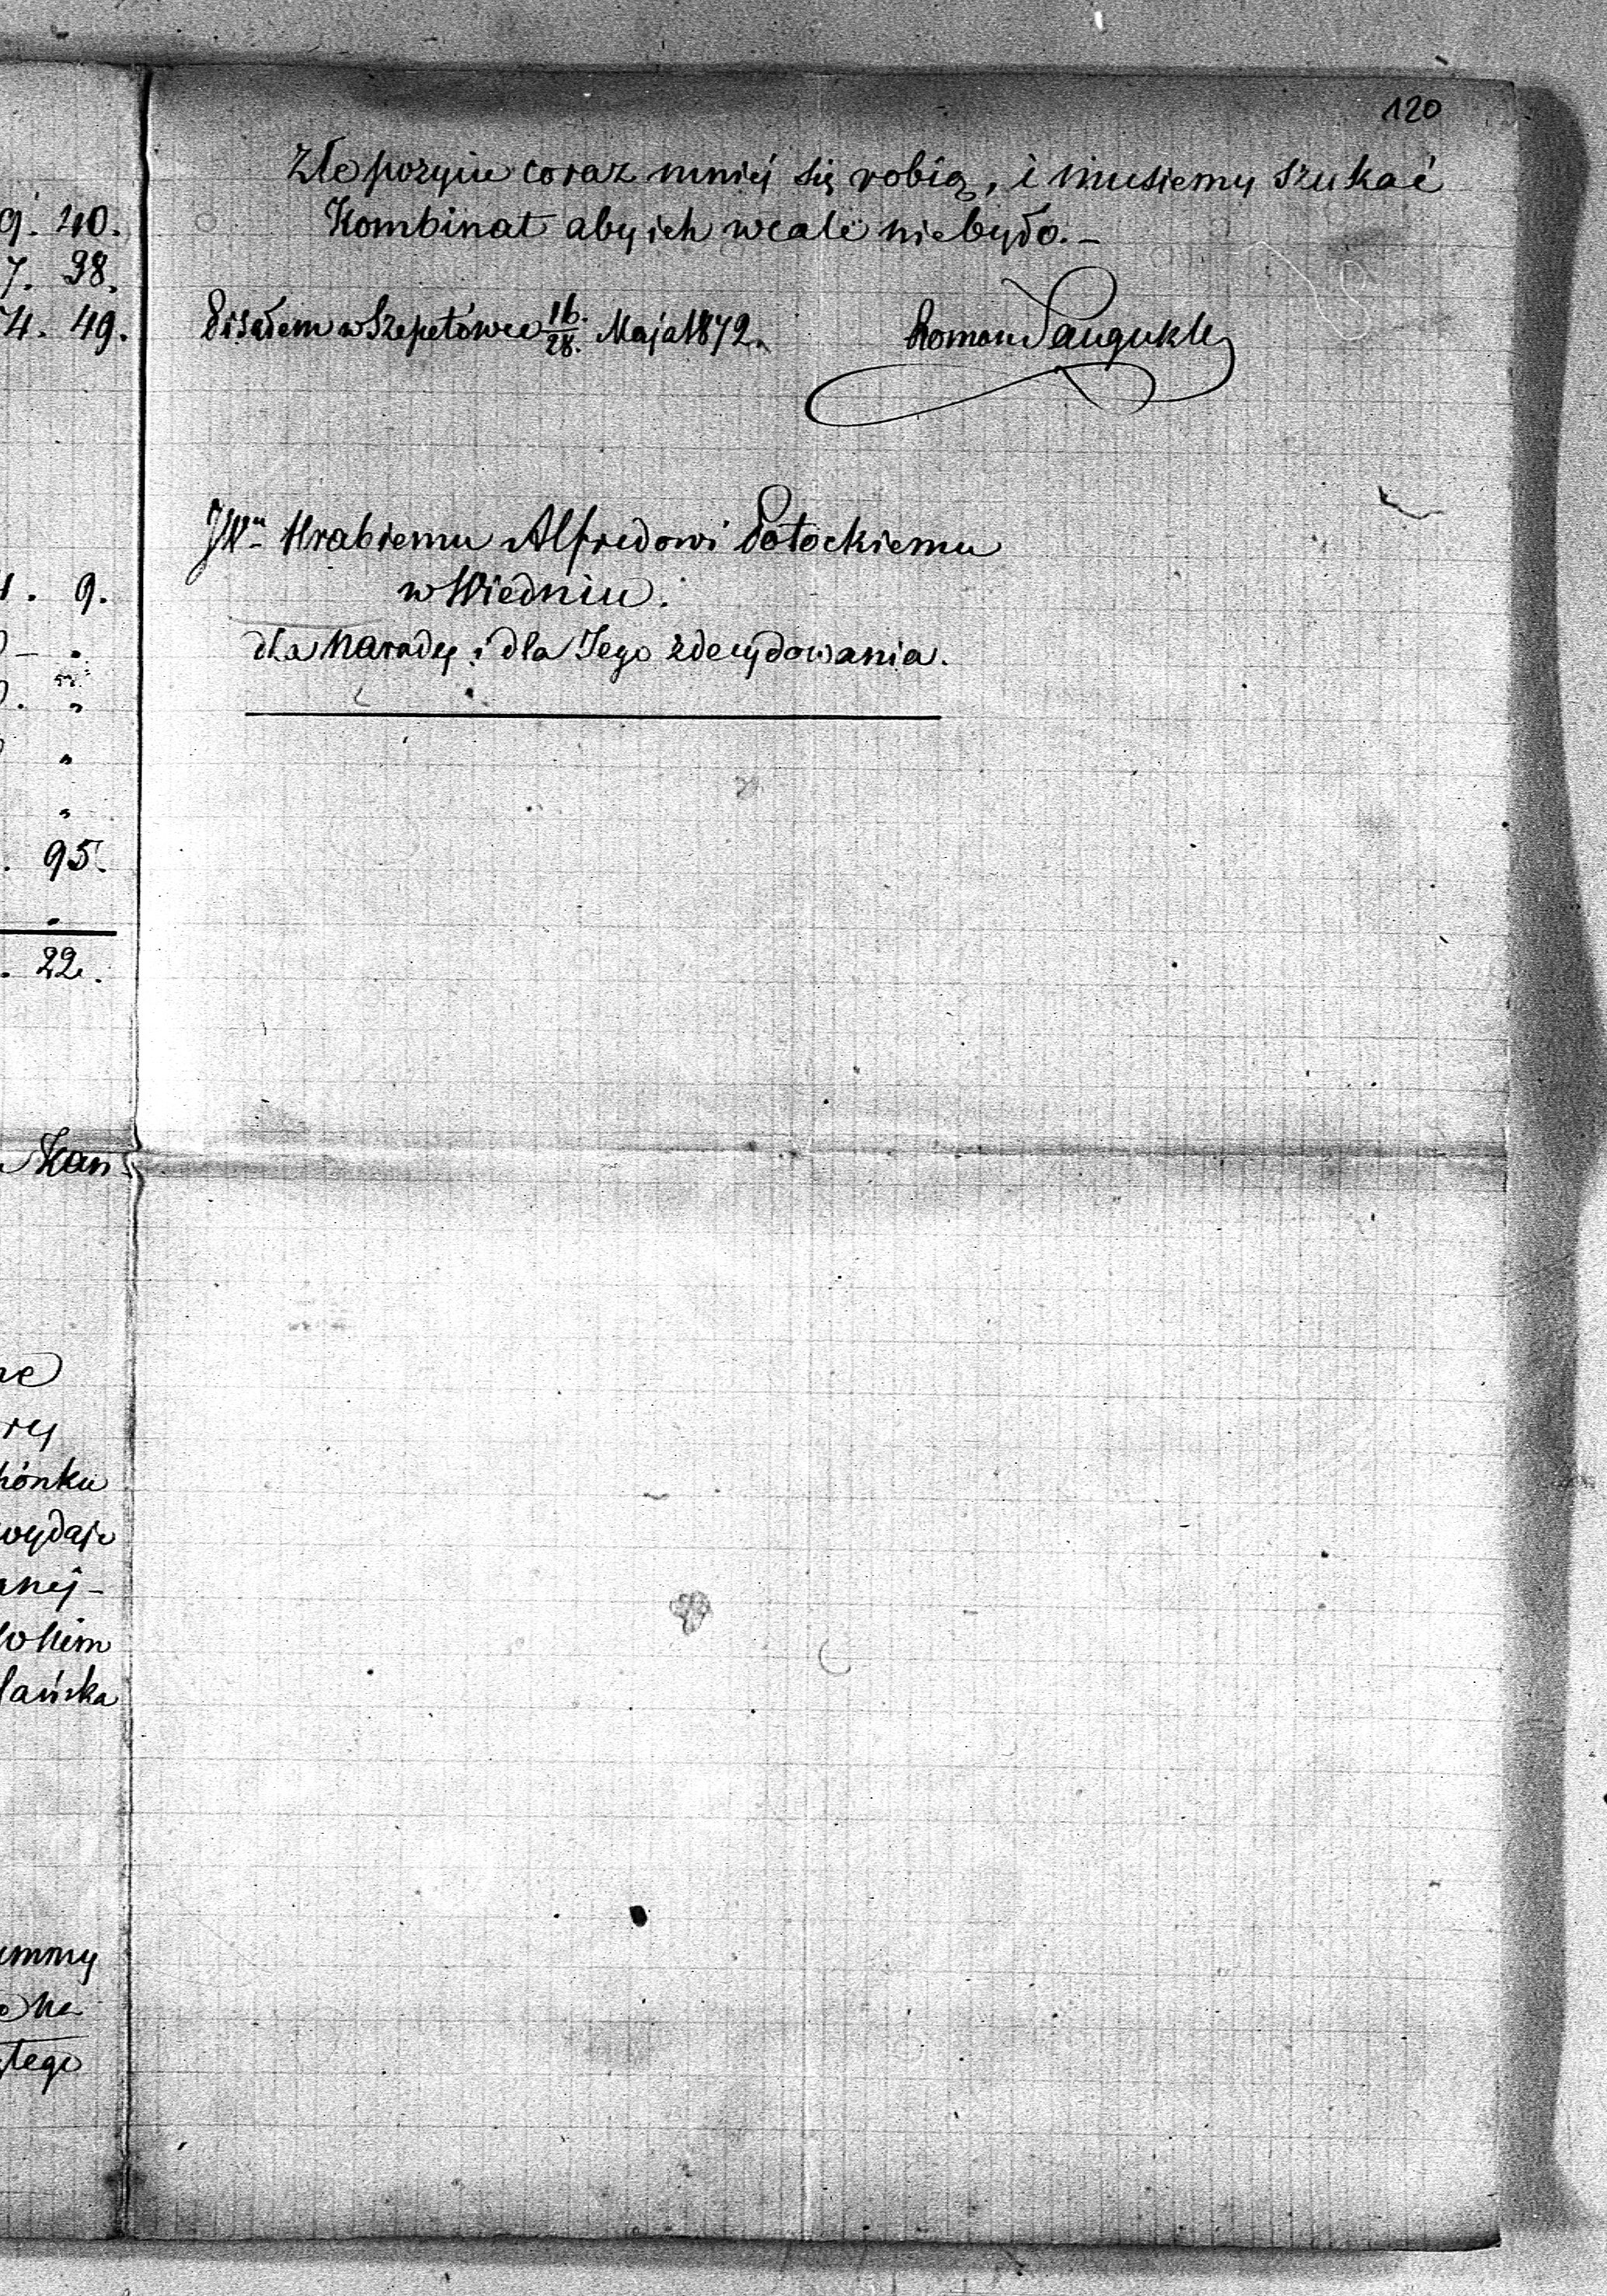 120
Złe pozycie coraz mniéj się robią, i musiemy szukać
Kombinat aby ich wcale niebyło.-
Pisałem w Szepetówce 16./28. Maja 1872.
Roman Sanguszko
JWu Hrabiemu Alfredowi Potockiemu
w Wiedniu.
dla Narady i dla Jego zdecydowania.
9. 40.
7. 98.
4. 49.
9.
95.
22.
Kan
ne
ry
hónku
wydaje
nej-
kim
lańska
ummy
tego